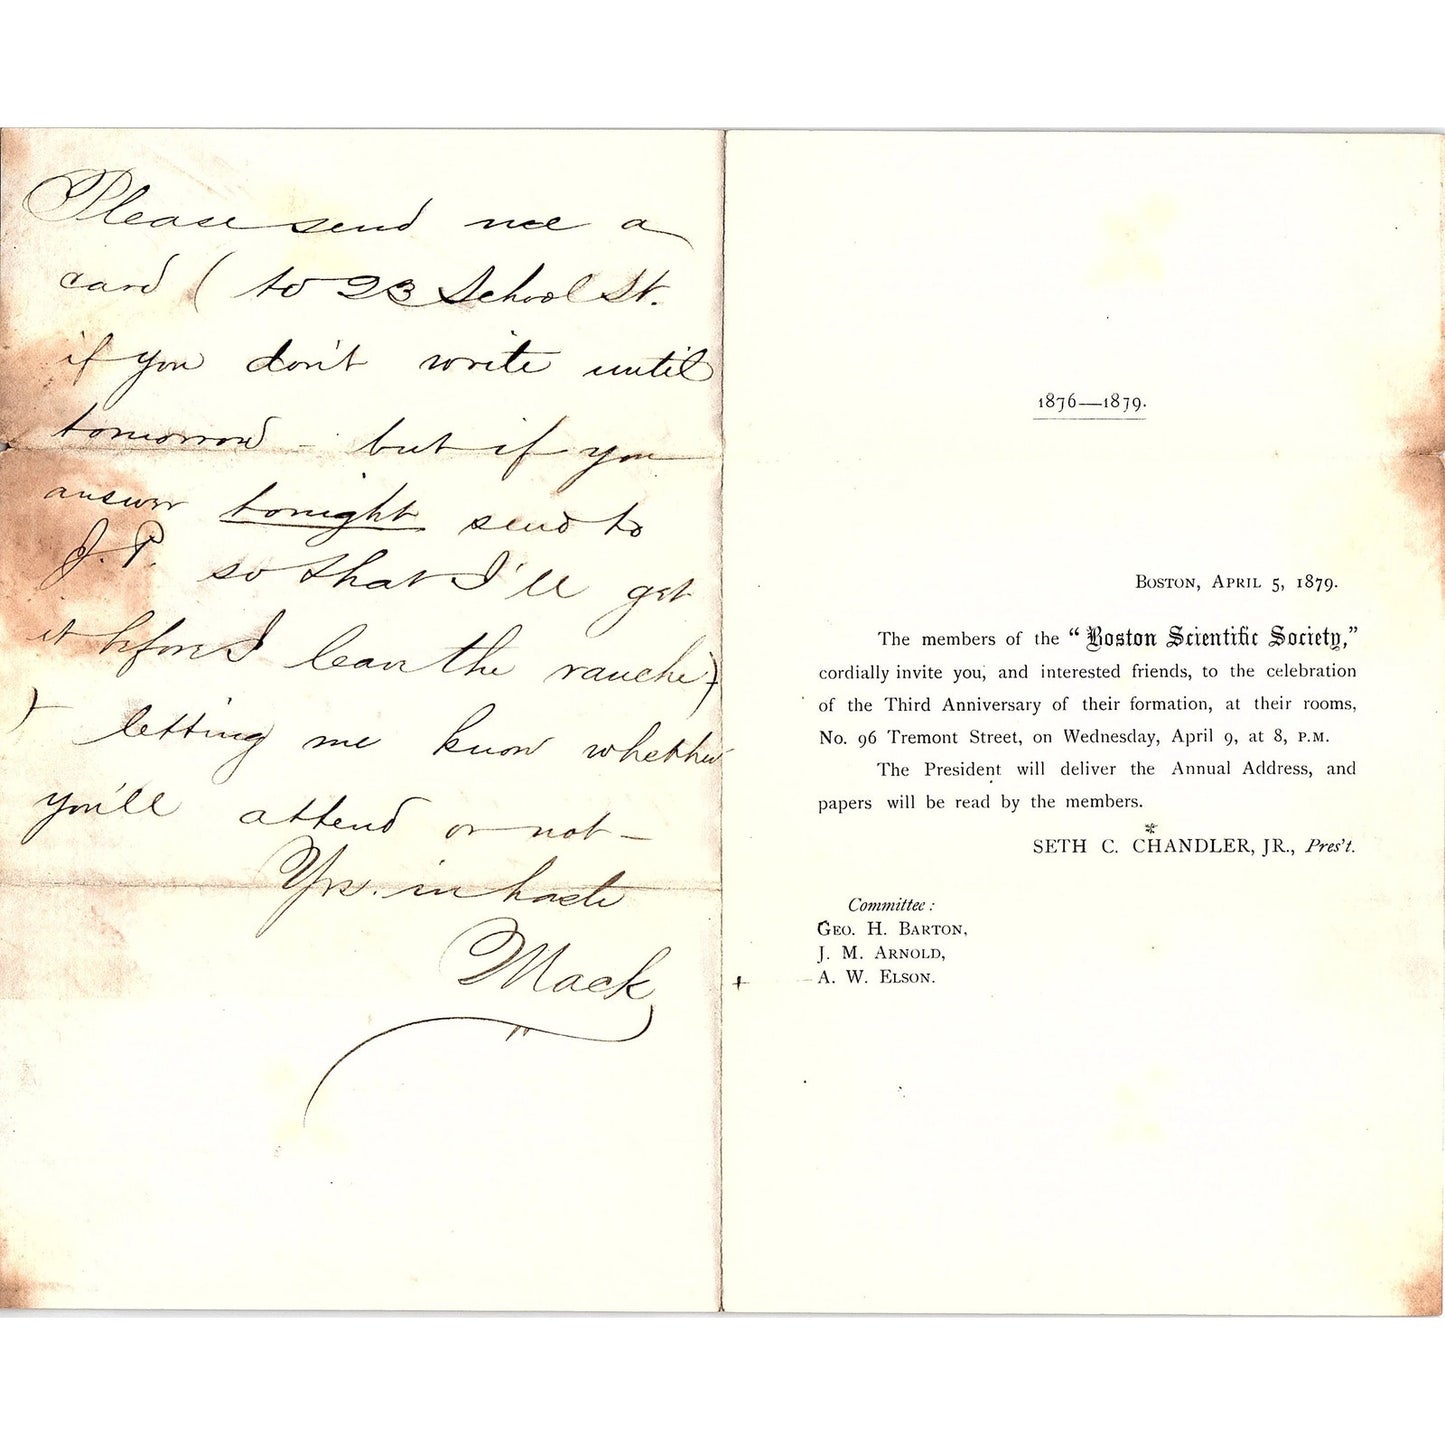 Please send me a
card ( to 23 School St.
if you don't write until
tomorrow - but if you
answer tonight send to
J. P. so that I'll get
it before I leave the ranche)
) letting me know whether
you'll attend or not -
Yrs. in haste
Mack
1876—1879.
BOSTON, APRIL 5, 1879.
The members of the "Boston Scientific Society,"
cordially invite you, and interested friends, to the celebration
of the Third Anniversary of their formation, at their rooms,
No. 96 Tremont Street, on Wednesday, April 9, at 8, P.M.
The President will deliver the Annual Address, and
papers will be read by the members.
SETH C. CHANDLER, JR., Pres't.
Committee:
GEO. H. BARTON,
J. M. ARNOLD,
A. W. ELSON.